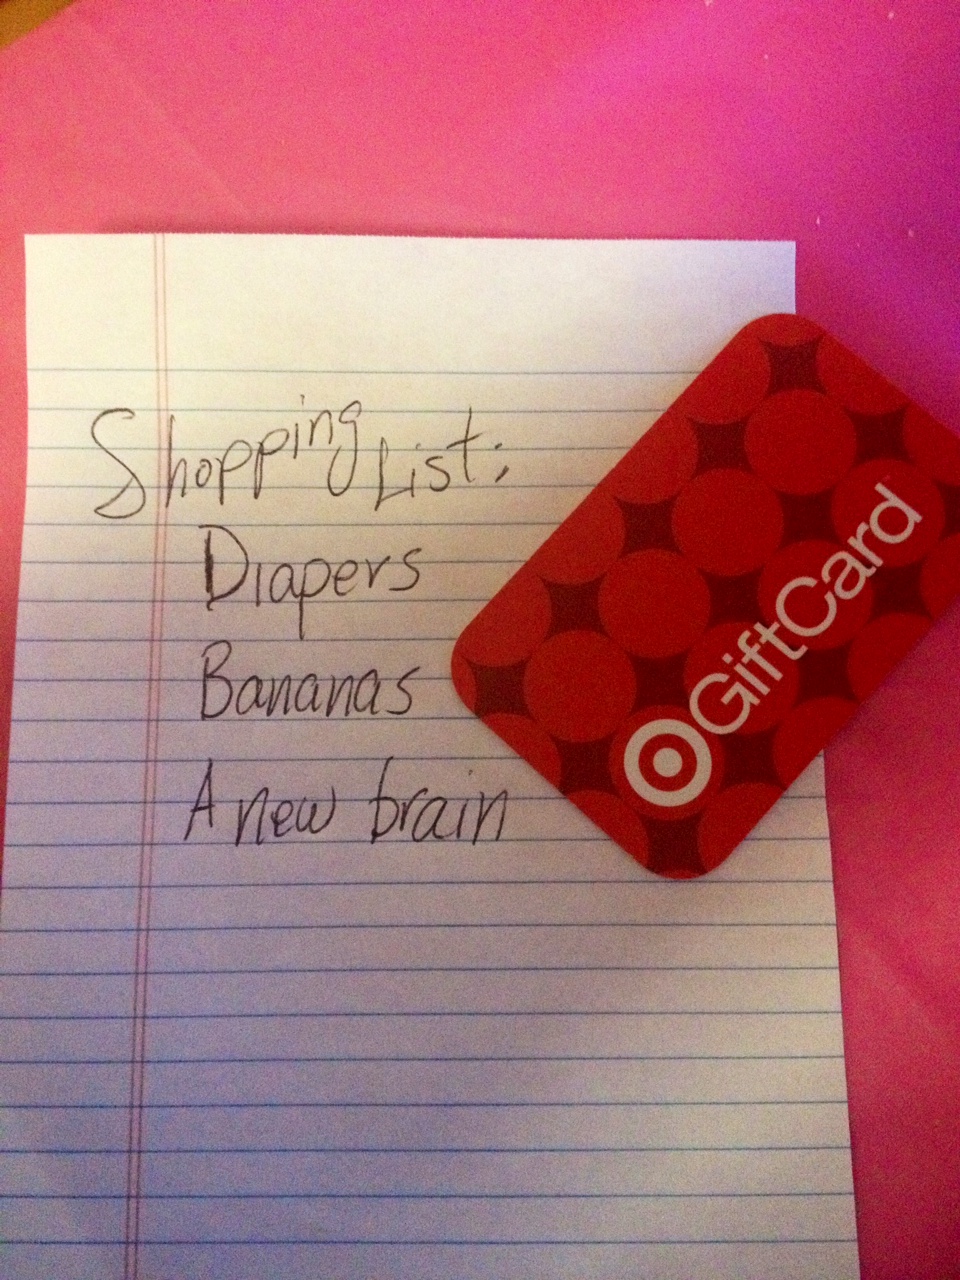 Shopping List:
Diapers
Bananas
A new brain
GiftCard